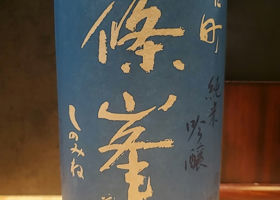 雄町
純米
吟醸
篠峯
しのみね